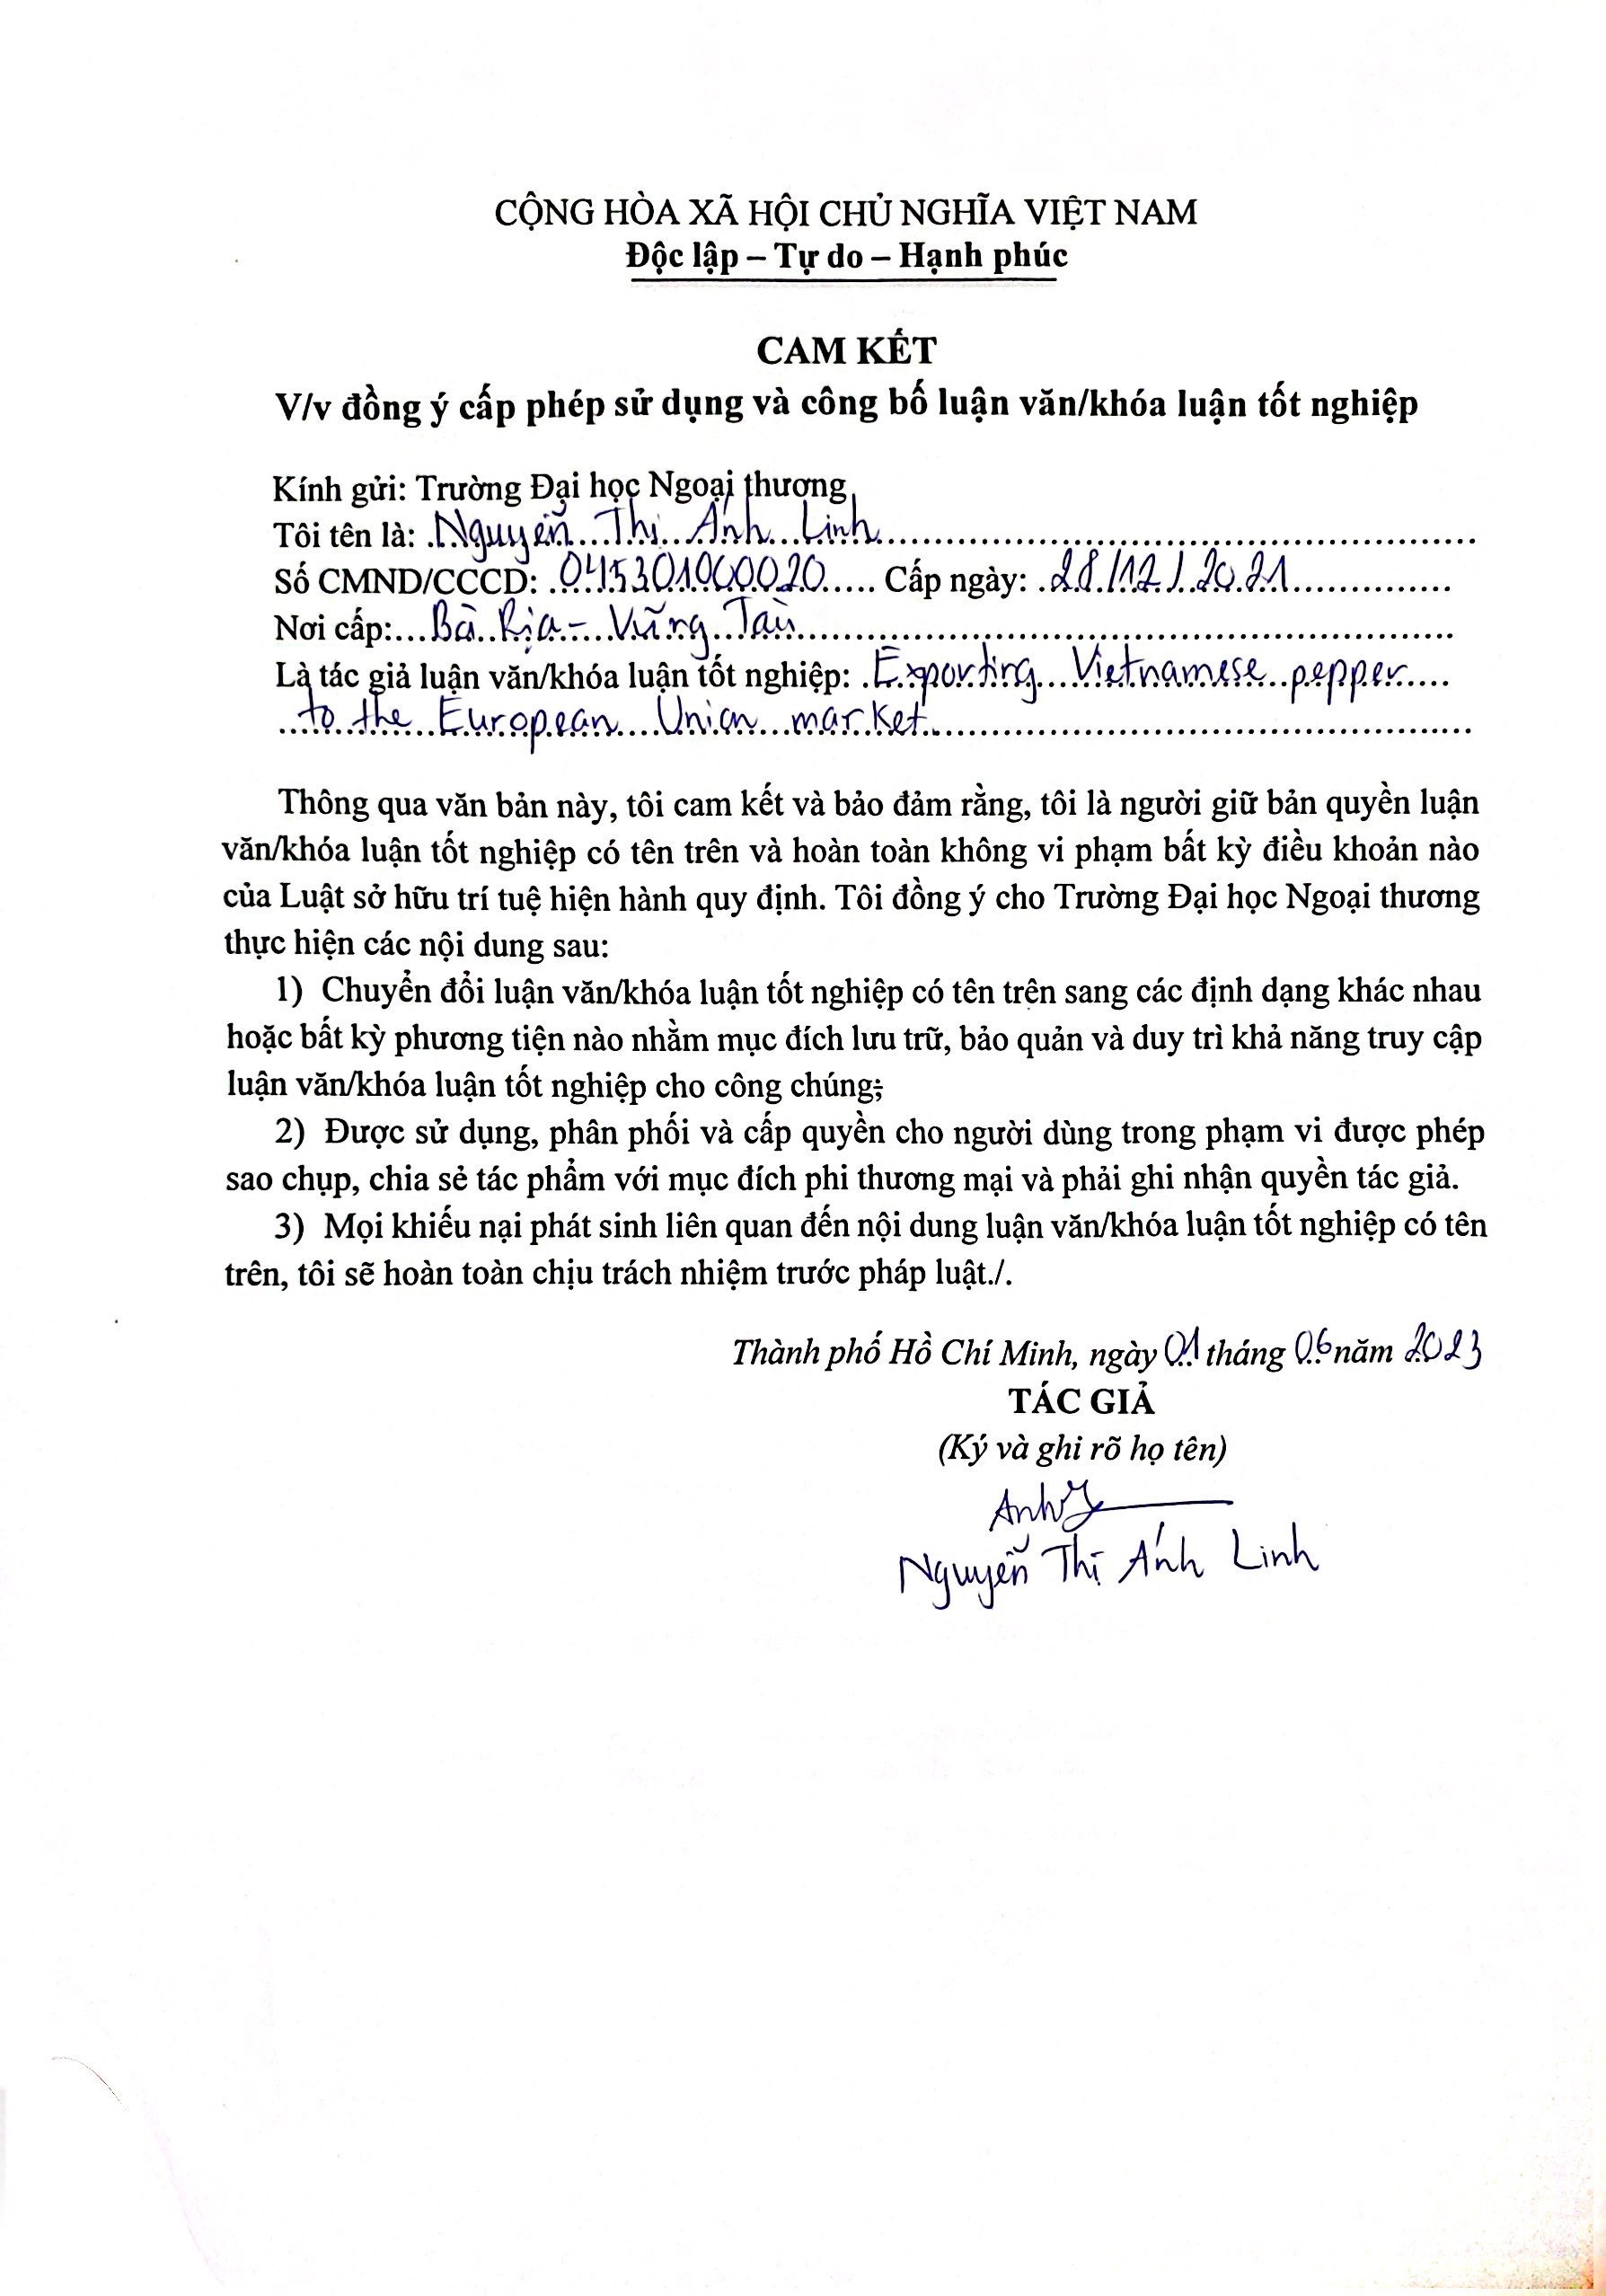 CỘNG HÒA XÃ HỘI CHỦ NGHĨA VIỆT NAM
Độc lập – Tự do – Hạnh phúc
CAM KẾT
V/v đồng ý cấp phép sử dụng và công bố luận văn/khóa luận tốt nghiệp
Kính gửi: Trường Đại học Ngoại thương
Tôi tên là: Nguyễn Thị Ánh Linh
Số CMND/CCCD: 045301000020 Cấp ngày: 28/12/2021
Nơi cấp: Bà Rịa - Vũng Tàu
Là tác giả luận văn/khóa luận tốt nghiệp: Exporting Vietnamese pepper
to the European Union market.
Thông qua văn bản này, tôi cam kết và bảo đảm rằng, tôi là người giữ bản quyền luận
văn/khóa luận tốt nghiệp có tên trên và hoàn toàn không vi phạm bất kỳ điều khoản nào
của Luật sở hữu trí tuệ hiện hành quy định. Tôi đồng ý cho Trường Đại học Ngoại thương
thực hiện các nội dung sau:
1) Chuyển đổi luận văn/khóa luận tốt nghiệp có tên trên sang các định dạng khác nhau
hoặc bất kỳ phương tiện nào nhằm mục đích lưu trữ, bảo quản và duy trì khả năng truy cập
luận văn/khóa luận tốt nghiệp cho công chúng;
2) Được sử dụng, phân phối và cấp quyền cho người dùng trong phạm vi được phép
sao chụp, chia sẻ tác phẩm với mục đích phi thương mại và phải ghi nhận quyền tác giả.
3) Mọi khiếu nại phát sinh liên quan đến nội dung luận văn/khóa luận tốt nghiệp có tên
trên, tôi sẽ hoàn toàn chịu trách nhiệm trước pháp luật./.
Thành phố Hồ Chí Minh, ngày 01 tháng 06 năm 2023
TÁC GIẢ
(Ký và ghi rõ họ tên)
Nguyễn Thị Ánh Linh